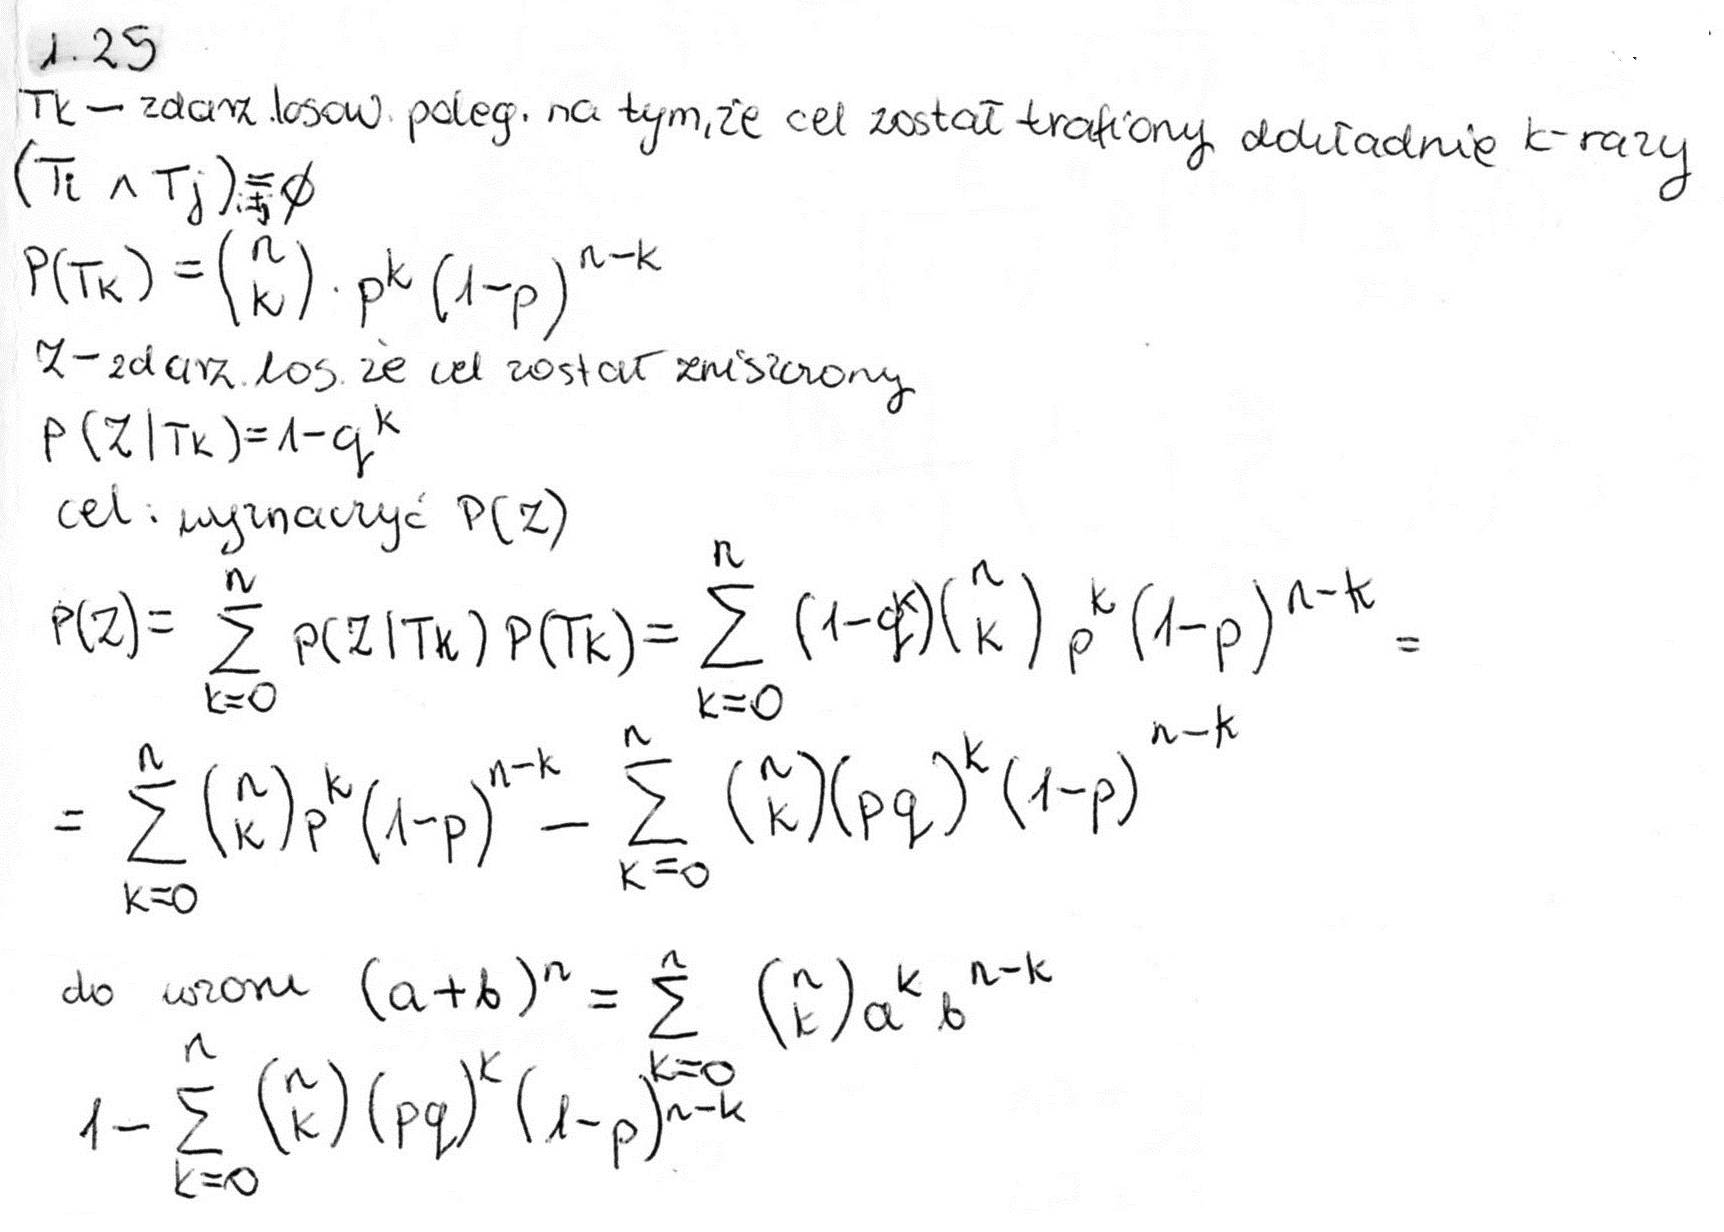 1.25
Tk – zdarz.losow. poleg. na tym, że cel został trafiony dokładnie k-razy
(Ti ∧ Tj) i≠j = ∅
P(Tk) = (n k) · p^k (1-p)^{n-k}
Z – zdarz. los. że cel został zniszczony
P(Z|Tk) = 1-q^k
cel: wyznaczyć P(Z)
P(Z) = ∑_{k=0}^{n} P(Z|Tk) P(Tk) = ∑_{k=0}^{n} (1-q^k)(n k) p^k (1-p)^{n-k} =
= ∑_{k=0}^{n} (n k) p^k (1-p)^{n-k} – ∑_{k=0}^{n} (n k)(pq)^k (1-p)^{n-k}
do wzoru (a+b)^n = ∑_{k=0}^{n} (n k) a^k b^{n-k}
1 – ∑_{k=0}^{n} (n k)(pq)^k (1-p)^{n-k}